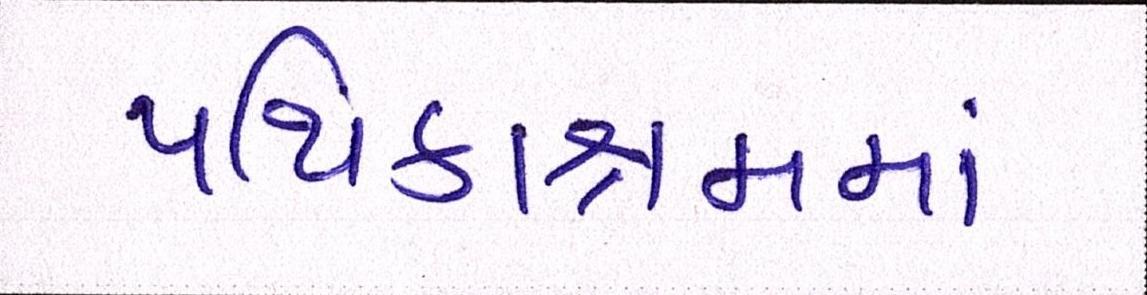 પથિકાશ્રમમાં